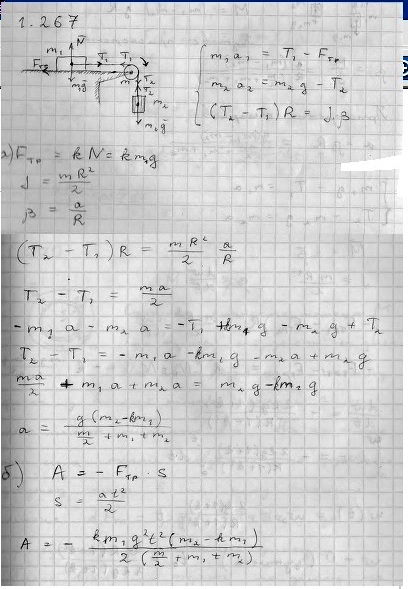 1.267
N
m₁
T₁
T₁
Fтр
m
T₂
T₂
m₁g
m₂
m₂g
m₁a₁ = T₁ - Fтр
m₂a₂ = m₂g - T₂
(T₂ - T₁)R = Jβ
а) Fтр = kN = km₁g
J = mR²/2
β = a/R
(T₂ - T₁)R = mR²/2 a/R
T₂ - T₁ = ma/2
-m₁a - m₂a = -T₁ + km₁g - m₂g + T₂
T₂ - T₁ = -m₁a - km₁g - m₂a + m₂g
ma/2 + m₁a + m₂a = m₂g - km₁g
a = g(m₂ - km₁)/(m/2 + m₁ + m₂)
б) A = - Fтр · S
S = at²/2
A = - km₁g²t²(m₂ - km₁)/2(m/2 + m₁ + m₂)